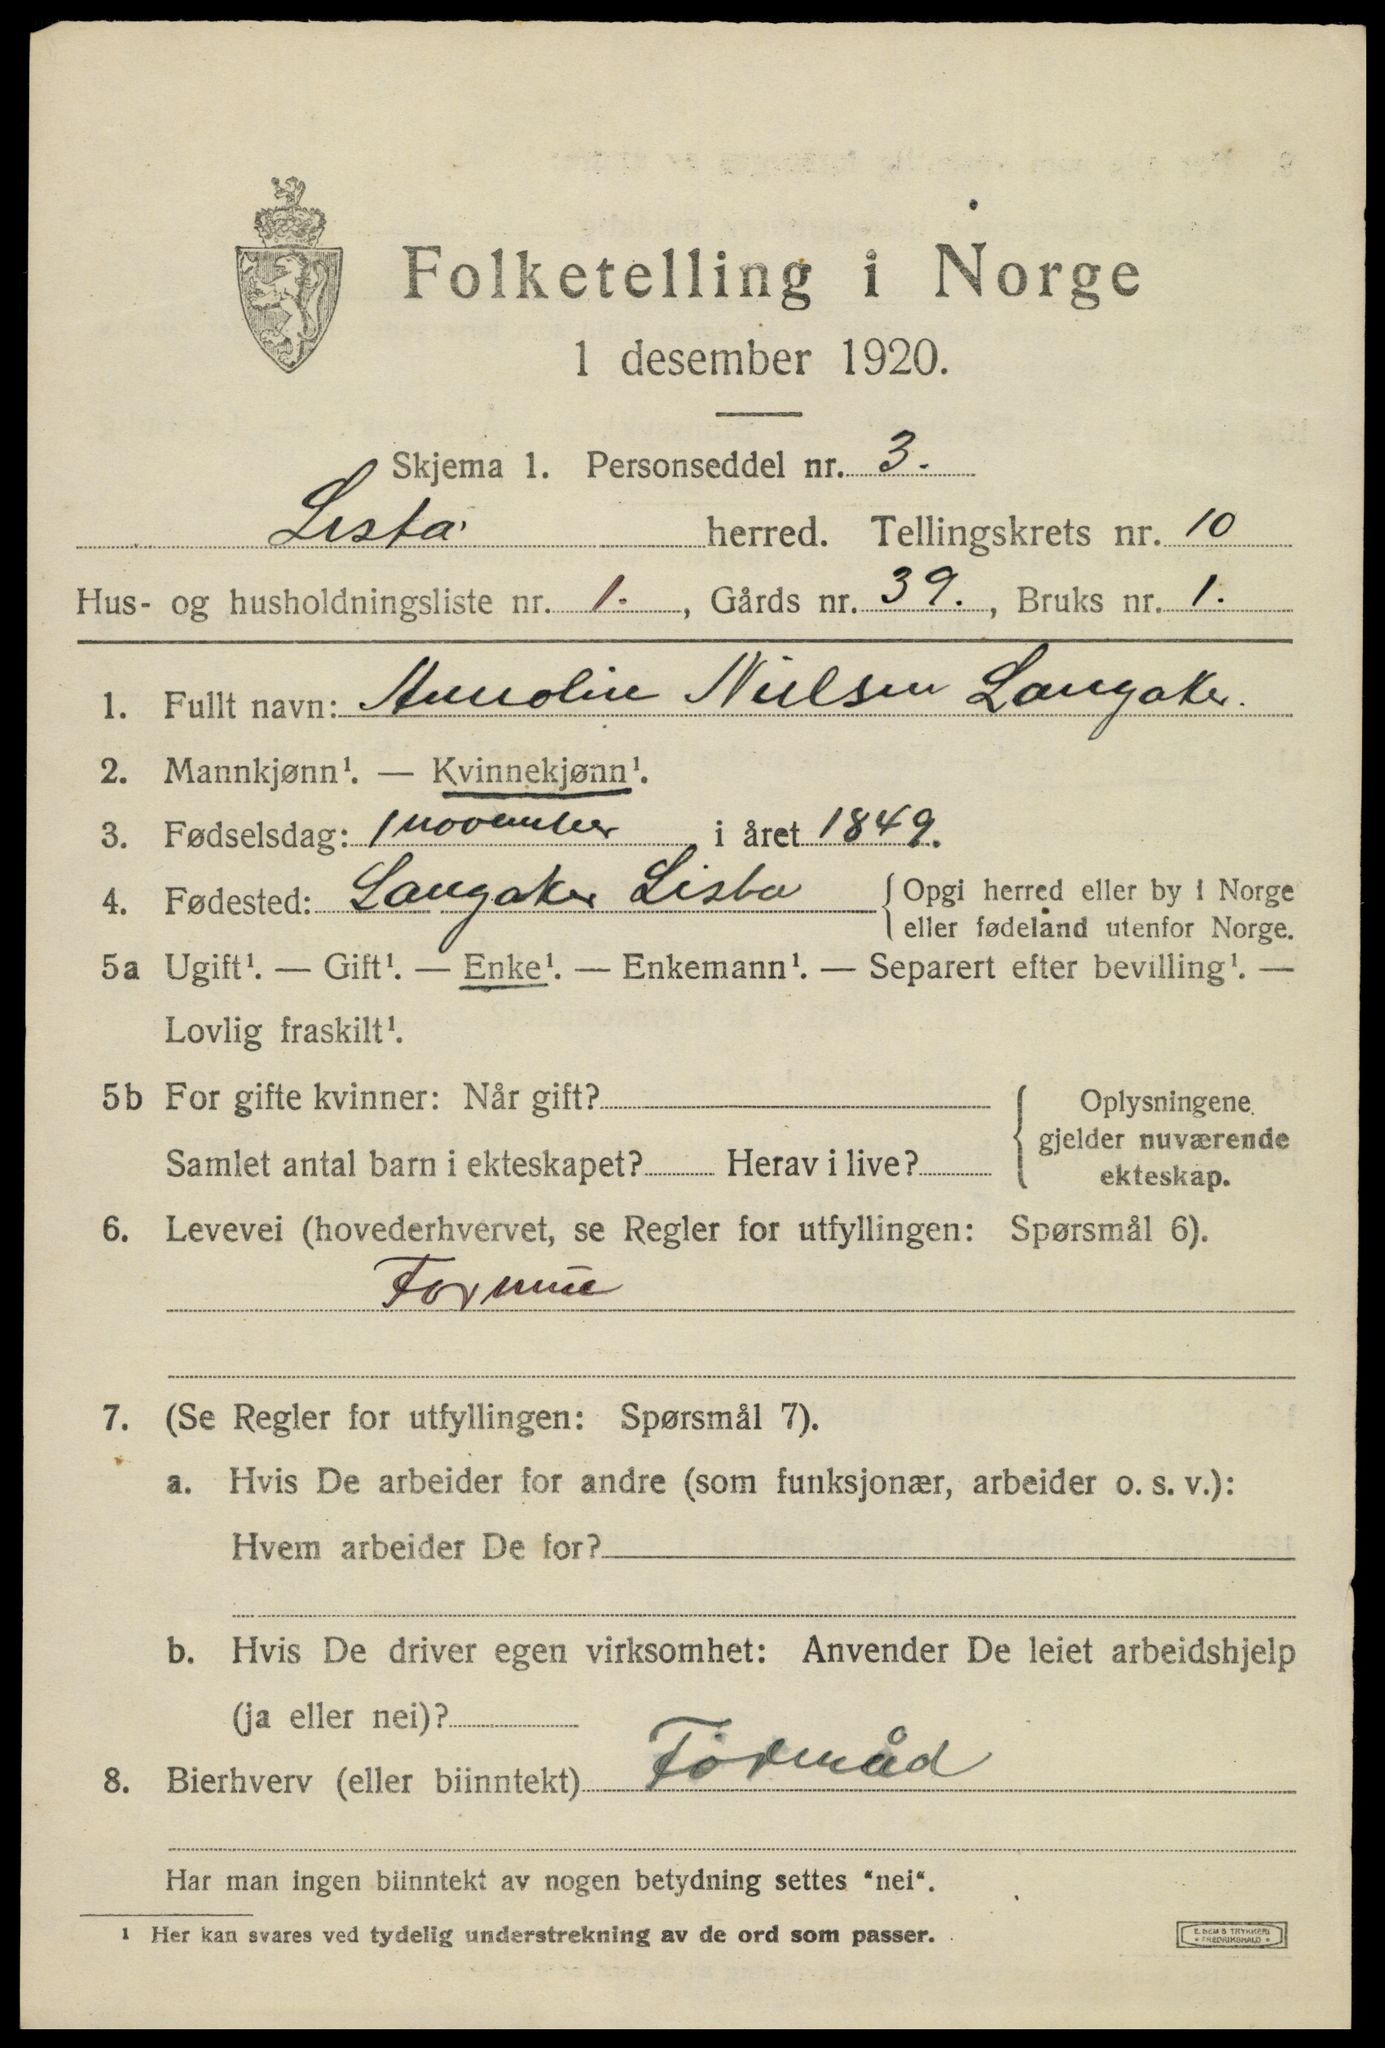 Folketelling i Norge
1 desember 1920.
Skjema 1. Personseddel nr. 3.
Lista herred. Tellingskrets nr. 10
Hus- og husholdningsliste nr. 1., Gårds nr. 39., Bruks nr. 1.
1. Fullt navn: Annoline Nielsen Langaker.
2. Mannkjønn¹. — Kvinnekjønn¹.
3. Fødselsdag: 1 november i året 1849.
4. Fødested: Langaker Lista { Opgi herred eller by i Norge
eller fødeland utenfor Norge.
5a Ugift¹. — Gift¹. — Enke¹. — Enkemann¹. — Separert efter bevilling¹. —
Lovlig fraskilt¹.
5b For gifte kvinner: Når gift? { Oplysningene
gjelder nuværende
Samlet antal barn i ekteskapet? Herav i live? ekteskap.
6. Levevei (hovederhvervet, se Regler for utfyllingen: Spørsmål 6).
Formue
7. (Se Regler for utfyllingen: Spørsmål 7).
a. Hvis De arbeider for andre (som funksjonær, arbeider o. s. v.):
Hvem arbeider De for?
b. Hvis De driver egen virksomhet: Anvender De leiet arbeidshjelp
(ja eller nei)?
8. Bierhverv (eller biinntekt) Føderåd
Har man ingen biinntekt av nogen betydning settes "nei".
¹ Her kan svares ved tydelig understrekning av de ord som passer.
E. SEM'S TRYKKERI
* FREDRIKSHALD *